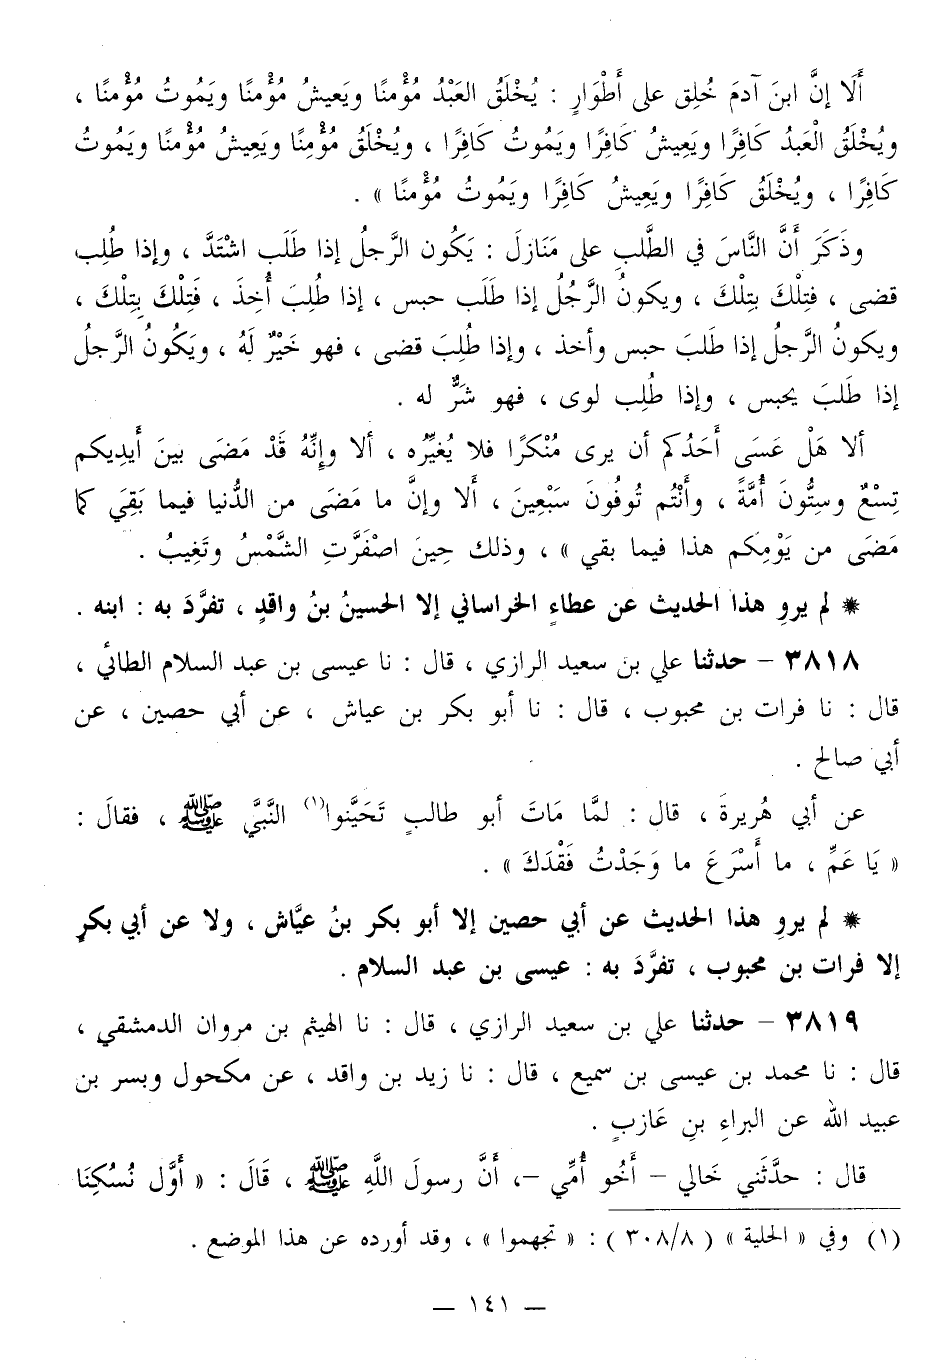 أَلَا إنَّ ابنَ آدمَ خُلِق على أَطْوَارٍ : يُخْلَقُ العَبْدُ مُؤْمنًا ويَعيشُ مُؤْمنًا ويَموتُ مُؤْمنًا ،
ويُخْلَقُ الْعَبدُ كَافِرًا ويَعِيشُ كَافِرًا ويَمُوتُ كَافِرًا ، ويُخْلَقُ مُؤْمِنًا ويَعِيشُ مُؤْمنًا ويَمُوتُ
كَافِرًا ، ويُخْلَقُ كَافِرًا ويَعِيشُ كَافِرًا ويَمُوتُ مُؤْمنًا » .
وذَكَرَ أَنَّ النَّاسَ في الطَّلبِ على مَنَازلَ : يَكُون الرَّجلُ إذا طَلَب اشْتَدَّ ، وإذا طُلِب
قضى ، فتِلْكَ بتِلْكَ ، ويكونُ الرَّجُلُ إذا طَلَب حبس ، إذا طُلِبَ أُخِذَ ، فَتِلْكَ بِتِلْكَ ،
ويكونُ الرَّجلُ إذا طَلبَ حبس وأخذ ، وإذا طُلِبَ قضى ، فهو خَيْرٌ لَهُ ، ويَكُونُ الرَّجلُ
إذا طَلبَ يحبس ، وإذا طُلِب لوى ، فهو شَرٌّ له .
ألا هَلْ عَسَى أَحَدُكم أن يرى مُنْكرًا فلا يُغيِّرُه ، ألا وإِنَّهُ قَدْ مَضَى بينَ أَيدِيكم
تِسْعٌ وستُّونَ أُمَّةً ، وأَنْتُم تُوفُونَ سَبْعِينَ ، أَلا وإنَّ ما مَضَى من الدُّنيا فيما بَقِيَ كما
مَضَى من يَوْمِكم هذا فيما بقي » ، وذلك حِينَ اصْفَرَّتِ الشَّمْسُ وتَغِيبُ .
* لم يروِ هذا الحديث عن عطاءِ الخراساني إلا الحسينُ بنُ واقدٍ ، تفرَّدَ به : ابنه .
٣٨١٨ – حدثنا علي بن سعيد الرازي ، قال : نا عيسى بن عبد السلام الطائي ،
قال : نا فرات بن محبوب ، قال : نا أبو بكر بن عياش ، عن أبي حصين ، عن
أبي صالح .
عن أبي هُريرةَ ، قال : لمَّا مَاتَ أبو طالبٍ تَحَيَّنوا(١) النَّبيَّ ﷺ ، فقالَ :
« يَا عَمِّ ، ما أَسْرَعَ ما وَجَدْتُ فَقْدَكَ » .
* لم يروِ هذا الحديث عن أبي حصين إلا أبو بكر بنُ عيَّاش ، ولا عن أبي بكرٍ
إلا فرات بن محبوب ، تفرَّدَ به : عيسى بن عبد السلام .
٣٨١٩ – حدثنا علي بن سعيد الرازي ، قال : نا الهيثم بن مروان الدمشقي ،
قال : نا محمد بن عيسى بن سميع ، قال : نا زيد بن واقد ، عن مكحول وبسر بن
عبيد الله عن البراءِ بنِ عَازبٍ .
قال : حدَّثَني خَالي – أَخُو أُمِّي –، أَنَّ رسولَ اللَّهِ ﷺ ، قَالَ : « أَوَّل نُسُكِنَا
(١) وفي « الحلية » (٣٠٨/٨) : « تجهموا » ، وقد أورده عن هذا الموضع .
– ١٤١ –